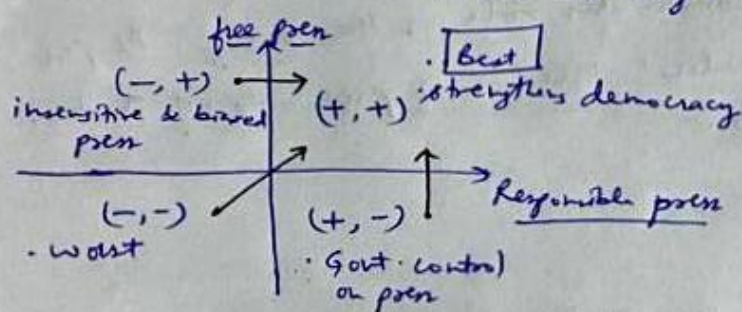 free press
(-, +)
insensitive & biased
press
(+, +)
. Best
. strengthens democracy
Responsible press
(-, -)
. worst
(+, -)
. Govt. control
on press